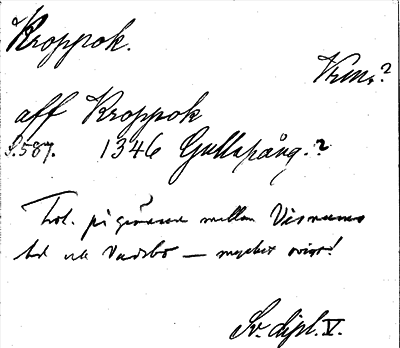 Kroppok.
Kens?
aff Kroppok
s. 587. 1346 Gullspång.?
Trol. på gränsen mellan Visnums
hd och Vadsbo — mycket ovisst!
Sv. dipl. V.